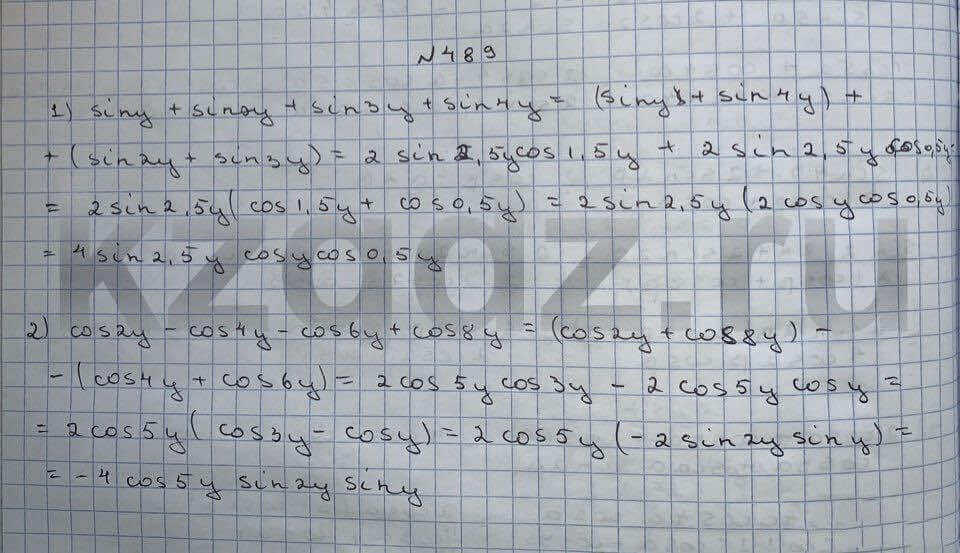 N489
1) siny + sin2y + sin3y + sin4y = (siny + sin4y) +
+ (sin2y + sin3y) = 2 sin2,5ycos1,5y + 2 sin2,5y cos0,5y=
= 2sin2,5y(cos1,5y + cos0,5y) = 2sin2,5y (2cosycos0,5y)
= 4sin2,5y cosycos0,5y
2) cos2y - cos4y - cos6y + cos8y = (cos2y + cos8y) -
- (cos4y + cos6y) = 2cos5ycos3y - 2cos5ycosy =
= 2cos5y(cos3y - cosy) = 2cos5y(-2sin2ysiny) =
= -4cos5y sin2y siny
kzgdz.ru